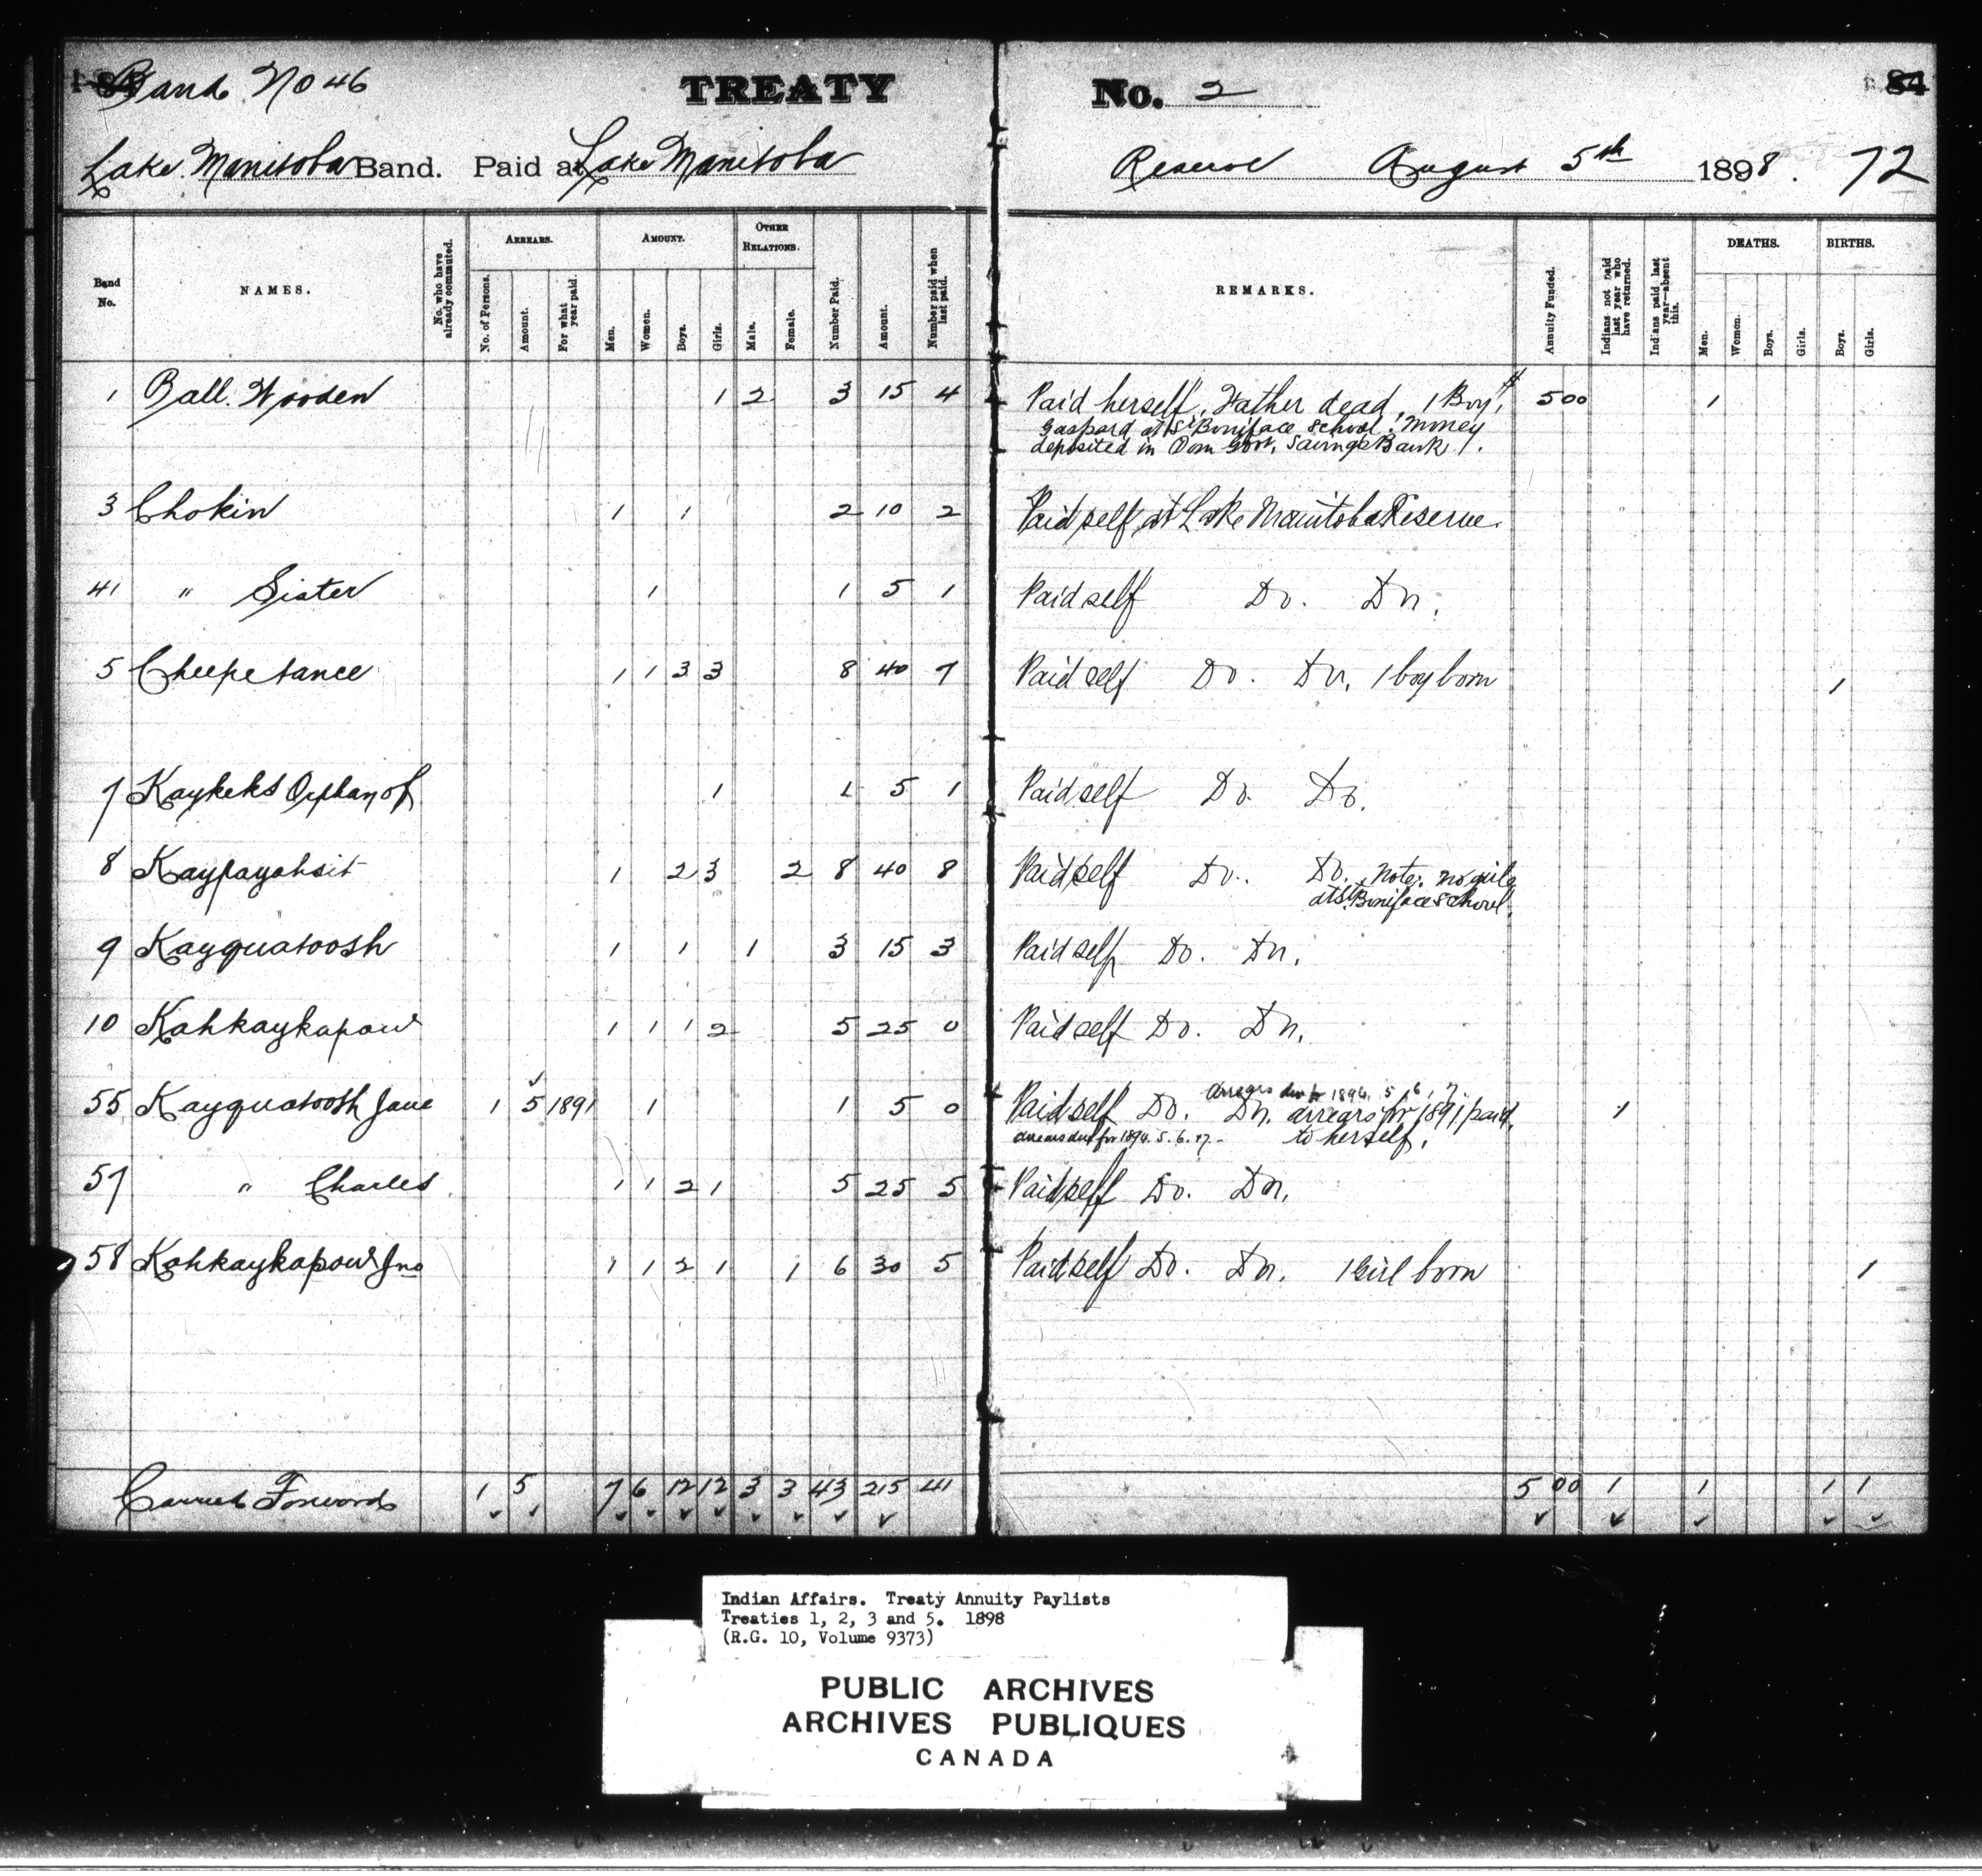 Band No 46 TREATY No. 2 84
Lake Manitoba Band. Paid at Lake Manitoba Reserve August 5th 1898. 72
Band No. NAMES. No. who have already commuted. ARREARS. No. of Persons. Amount. For what year paid. AMOUNT. Men. Women. Boys. Girls. OTHER RELATIONS. Male. Female. Number Paid. Amount. Number paid when last paid. REMARKS. Annuity Funded. Indians not paid last year who have returned. Indians paid last year—absent this. DEATHS. Men. Women. Boys. Girls. BIRTHS. Boys. Girls.
1 Ball. Wooden 1 2 3 15 4 Paid herself, Father dead, 1 Boy, $ 5 00 1
Gaspard at St Boniface School. Money
deposited in Dom Govt. Savings Bank.
3 Chokin 1 1 2 10 2 Paid self at Lake Manitoba Reserve.
41 " Sister 1 1 5 1 Paid self Do. Do.
5 Cheepetance 1 1 3 3 8 40 7 Paid self Do. Do. 1 boy born 1
7 Kaykeks Orphan of 1 1 5 1 Paid self Do. Do.
8 Kaypayahsit 1 2 3 2 8 40 8 Paid self Do. Do. Note. no girls
at St Boniface School.
9 Kayquatoosh 1 1 1 3 15 3 Paid self Do. Do.
10 Kahkaykapow 1 1 1 2 5 25 0 Paid self Do. Do.
Arrears due for 1894, 5, 6, 7
55 Kayquatoosh Jane 1 5 1891 1 1 5 0 Paid self Do. Do. arrears for 1891 paid 1
arrears due for 1894. 5. 6. 7. to herself.
57 " Charles 1 1 2 1 5 25 5 Paid self Do. Do.
58 Kahkaykapow Jno 1 1 2 1 1 6 30 5 Paid self Do. Do. 1 Girl born 1
Carried Forward 1 5 7 6 12 12 3 3 43 215 41 5 00 1 1 1 1
Indian Affairs. Treaty Annuity Paylists
Treaties 1, 2, 3 and 5. 1898
(R.G. 10, Volume 9373)
PUBLIC ARCHIVES
ARCHIVES PUBLIQUES
CANADA